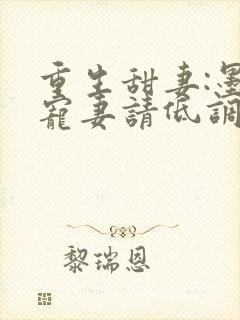 重生甜妻:墨
寵妻請低調
黎瑞恩